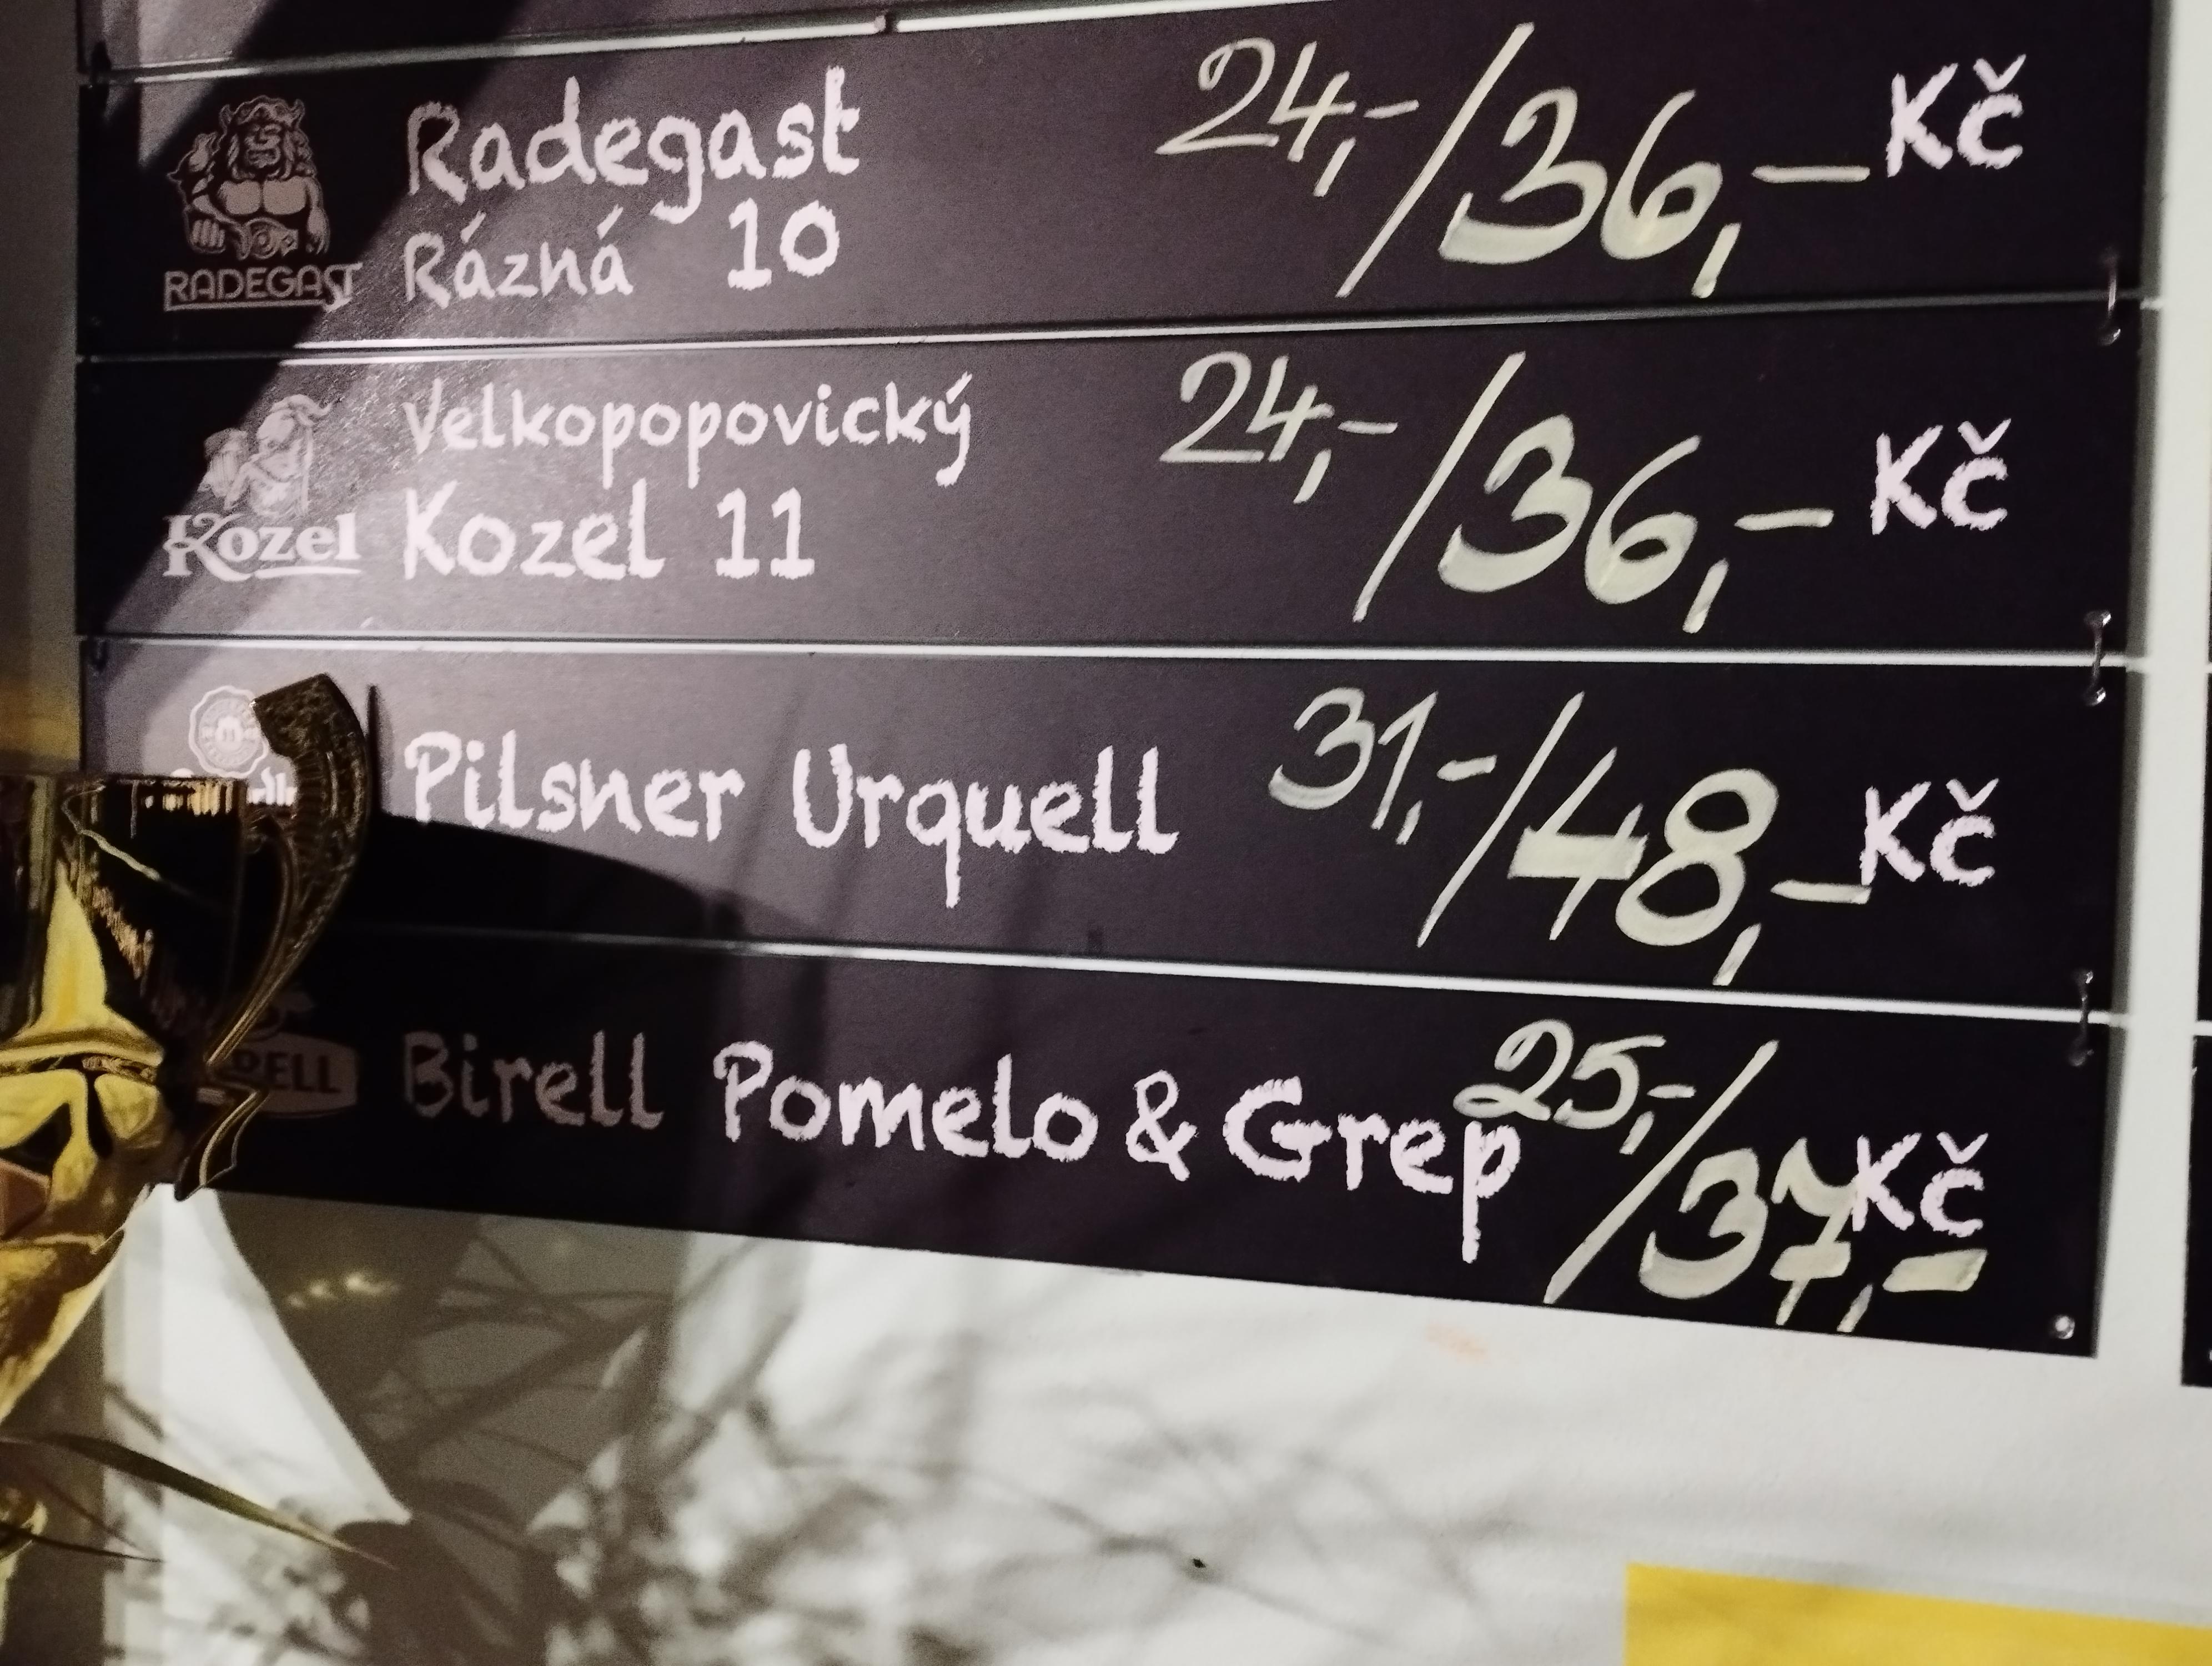 Radegast 24,-/36,- Kč
Rázná 10
RADEGAST
Velkopopovický 24,-/36,- Kč
Kozel 11
Kozel
Pilsner Urquell 31,-/48,- Kč
Birell Pomelo & Grep 25,-/37,- Kč